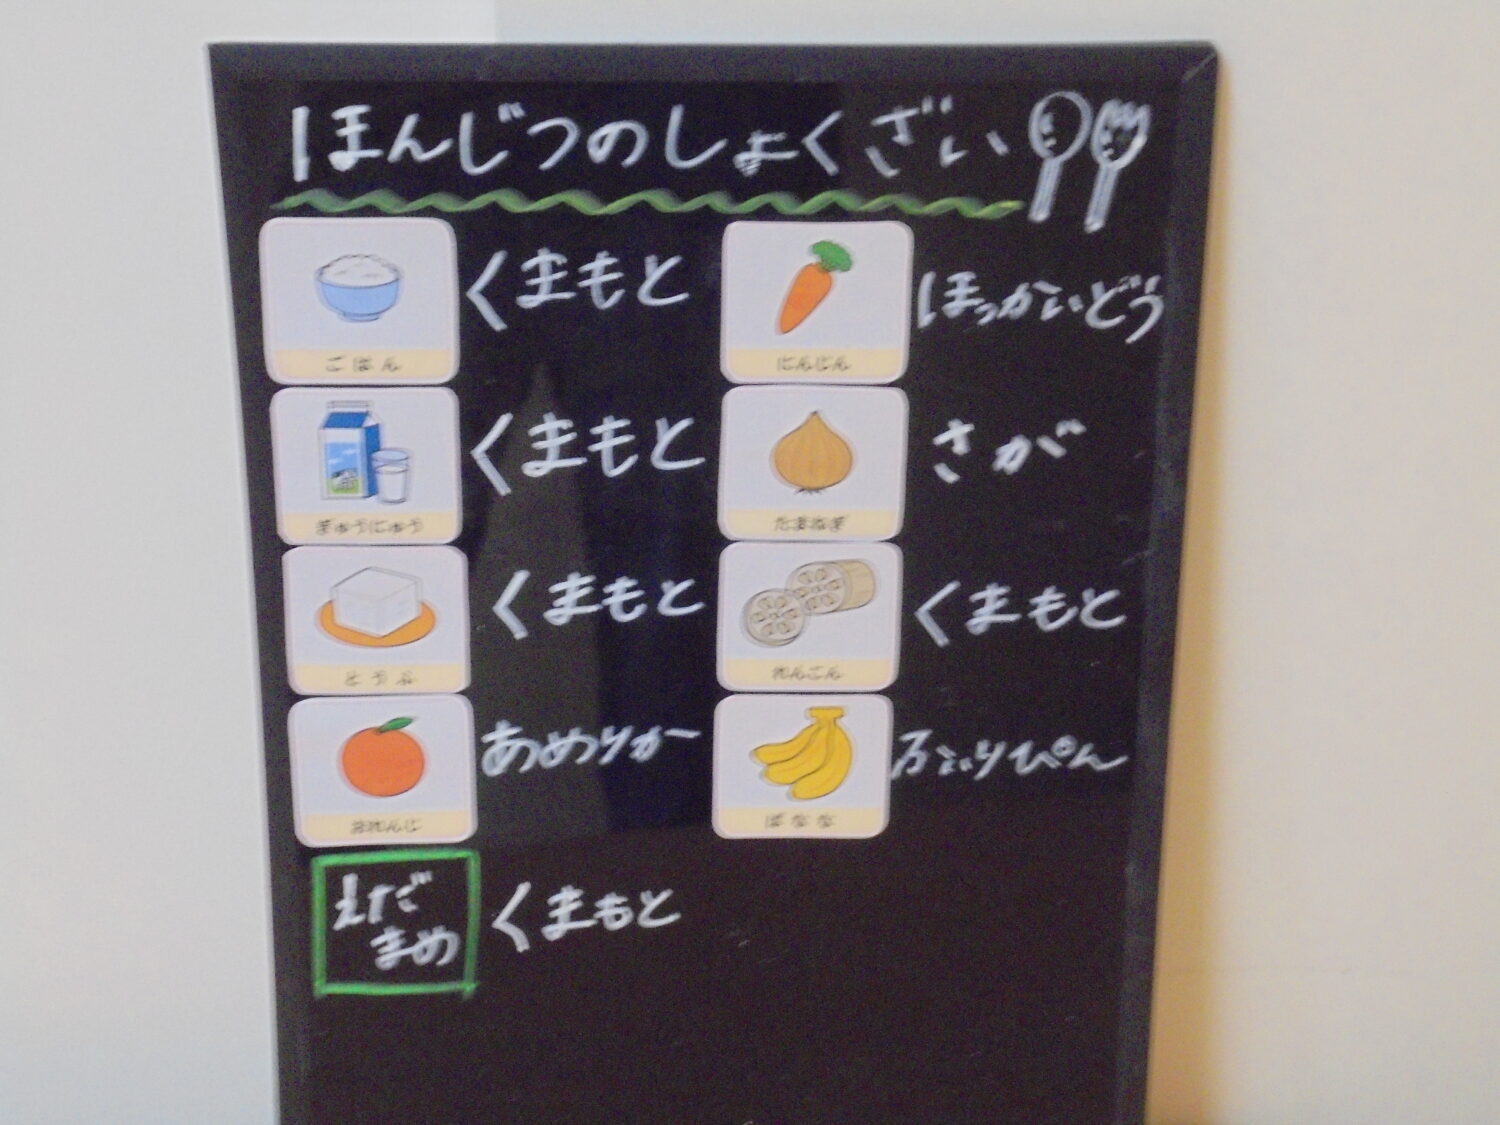 ほんじつのしょくざい
ごはん
くまもと
にんじん
ほっかいどう
ぎゅうにゅう
くまもと
たまねぎ
さが
とうふ
くまもと
れんこん
くまもと
おれんじ
あめりかー
ばなな
ふぃりぴん
えだ
まめ
くまもと